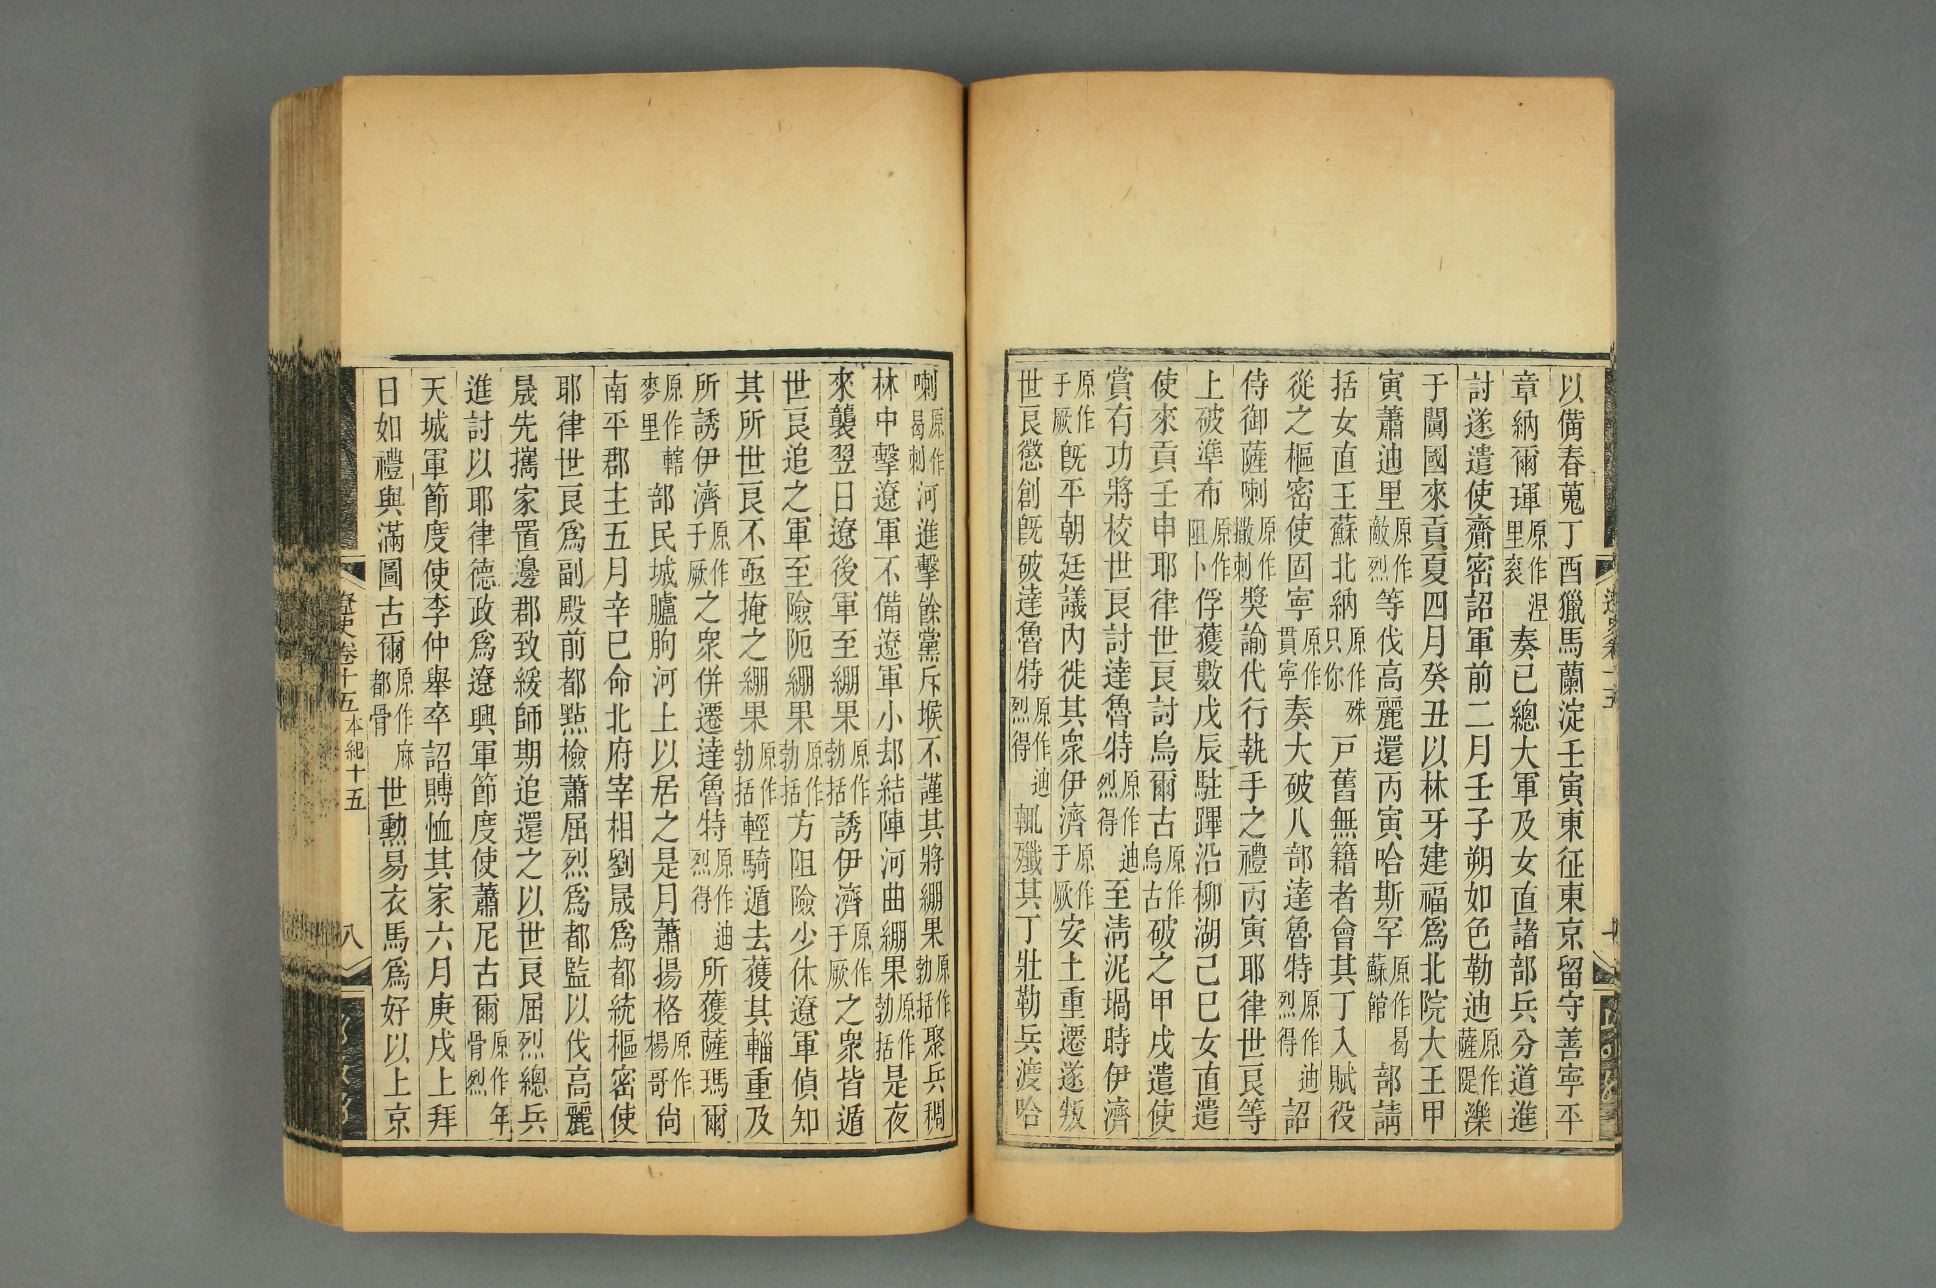 以備春蒐丁酉獵馬蘭淀壬寅東征東京留守善寧平
章納爾琿原作涅里袞奏已總大軍及女直諸部兵分道進
討遂遣使齎密詔軍前二月壬子朔如色勒迪原作薩隄濼
于闐國來貢夏四月癸丑以林牙建福爲北院大王甲
寅蕭迪里原作敵烈等伐高麗還丙寅哈斯罕原作曷蘇館部請
括女直王蘇北納原作殊只你戸舊無籍者會其丁入賦役
從之樞密使固寧原作貫寧奏大破八部達魯特原作迪烈得詔
侍御薩喇原作撒剌獎諭代行執手之禮丙寅耶律世良等
上破準布原作阻卜俘獲數戊辰駐蹕沿柳湖己巳女直遣
使來貢壬申耶律世良討烏爾古原作烏古破之甲戌遣使
賞有功將校世良討達魯特原作迪烈得至清泥堝時伊濟
原作于厥旣平朝廷議內徙其衆伊濟原作于厥安土重遷遂叛
世良懲創旣破達魯特原作迪烈得輒殲其丁壯勒兵渡哈
喇原作曷剌河進擊餘黨斥堠不謹其將綳果原作勃括聚兵稠
林中擊遼軍不備遼軍小却結陣河曲綳果原作勃括是夜
來襲翌日遼後軍至綳果原作勃括誘伊濟原作于厥之衆皆遁
世良追之軍至險阨綳果原作勃括方阻險少休遼軍偵知
其所世良不亟掩之綳果原作勃括輕騎遁去獲其輜重及
所誘伊濟原作于厥之衆併遷達魯特原作迪烈得所獲薩瑪爾
原作轄麥里部民城臚朐河上以居之是月蕭揚格原作楊哥尙
南平郡主五月辛巳命北府宰相劉晟爲都統樞密使
耶律世良爲副殿前都點檢蕭屈烈爲都監以伐高麗
晟先攜家置邊郡致緩師期追還之以世良屈烈總兵
進討以耶律德政爲遼興軍節度使蕭尼古爾原作年骨烈
天城軍節度使李仲舉卒詔賻恤其家六月庚戌上拜
日如禮與滿圖古爾原作麻都骨世勳易衣馬爲好以上京
遼史卷十五本紀十五 八